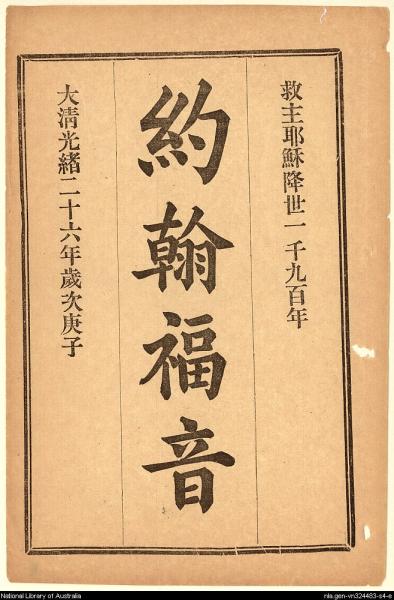 救主耶穌降世一千九百年
約翰福音
大清光緒二十六年歲次庚子
National Library of Australia
nla.gen-vn324483-s4-e